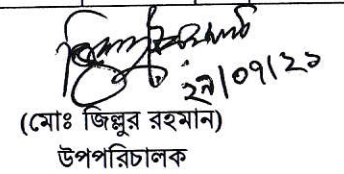 ২৭/০৭/২১
(মোঃ জিল্লুর রহমান)
উপপরিচালক